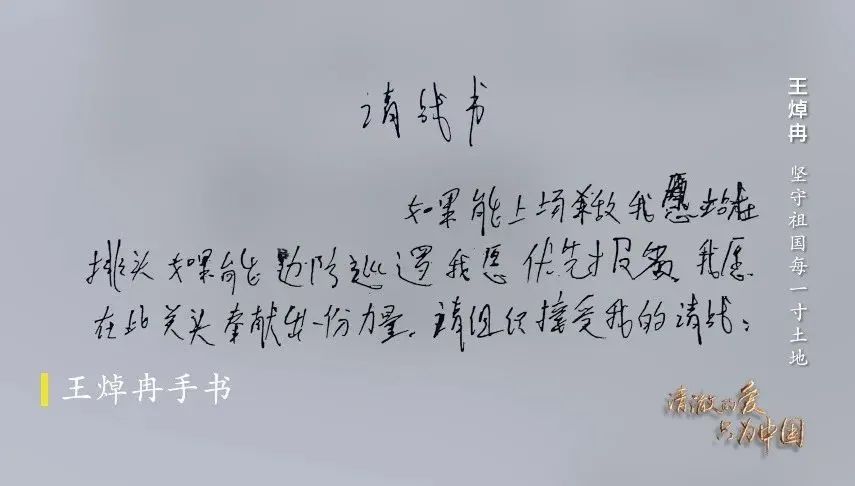 请战书
如果能上场杀敌我愿站在
排头如果能边防巡逻我愿优先报名 我愿
在此关头奉献出一份力量。请组织接受我的请战。
王焯冉手书
王焯冉 坚守祖国每一寸土地
清澈的爱
只为中国